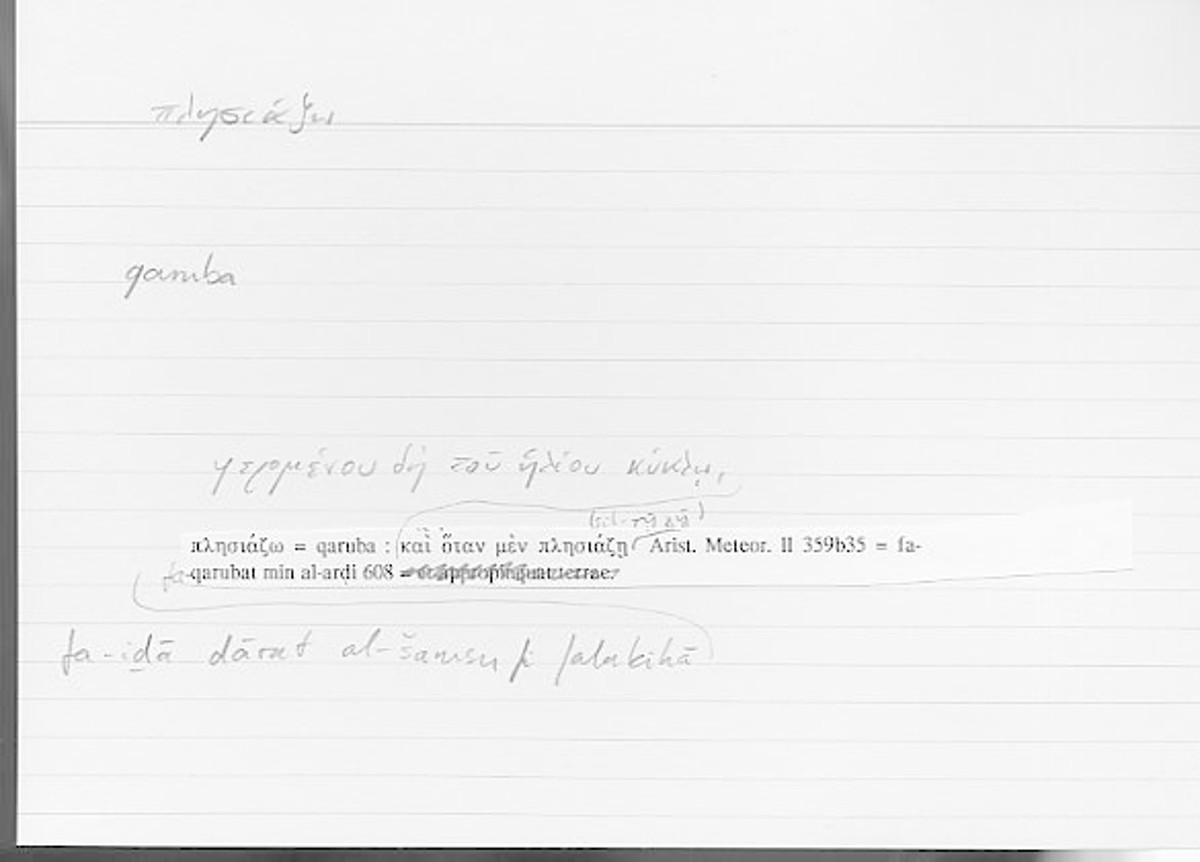 πλησιάζω
qaruba
φερομένου δὴ τοῦ ἡλίου κύκλῳ,
(scil. τῇ γῇ)
πλησιάζω = qaruba : καὶ ὅταν μὲν πλησιάζῃ Arist. Meteor. II 359b35 = fa-
fa-qarubat min al-arḍi 608 = et appropinquat terrae.
fa-iḏā dārat al-šamsu fī falakihā